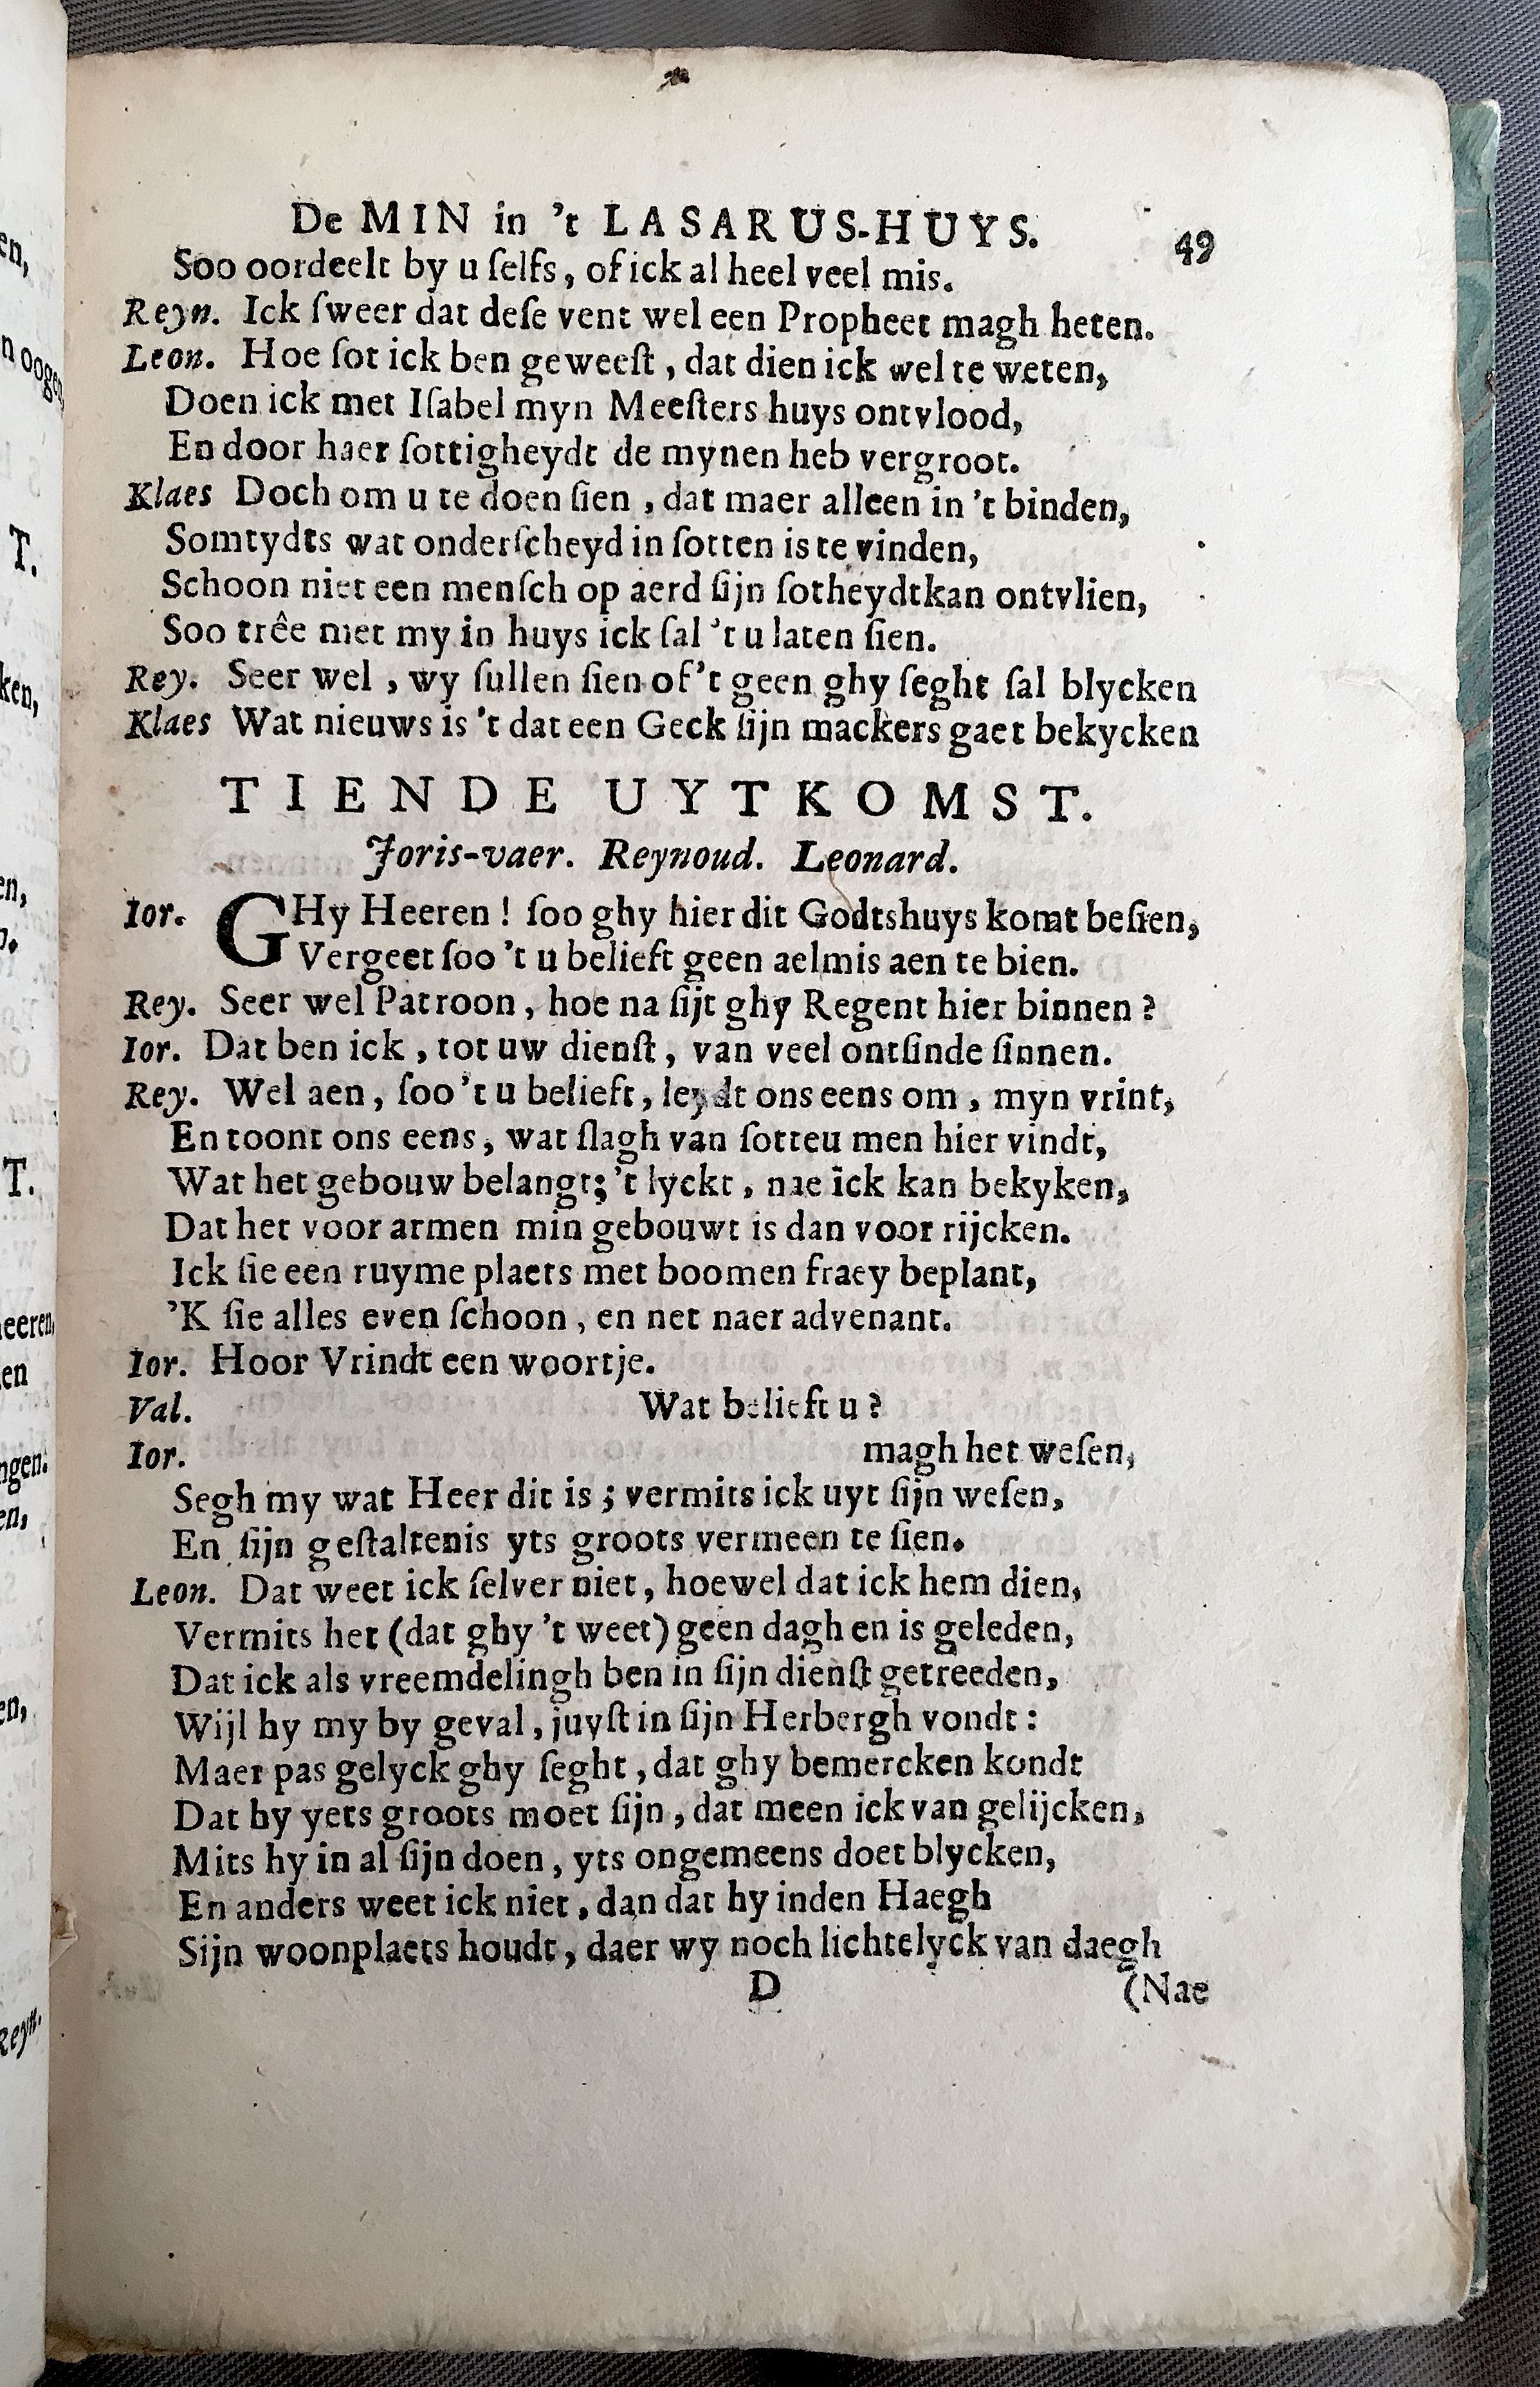 De MIN in 't LASARUS-HUYS. 49
Soo oordeelt by u ſelfs, of ick al heel veel mis.
Reyn. Ick ſweer dat deſe vent wel een Propheet magh heten.
Leon. Hoe ſot ick ben geweeſt, dat dien ick wel te weten,
Doen ick met Iſabel myn Meeſters huys ontvlood,
En door haer ſottigheydt de mynen heb vergroot.
Klaes Doch om u te doen ſien, dat maer alleen in 't binden,
Somtydts wat onderſcheyd in ſotten is te vinden,
Schoon niet een menſch op aerd ſijn ſotheydtkan ontvlien,
Soo trêe met my in huys ick ſal 't u laten ſien.
Rey. Seer wel, wy ſullen ſien of't geen ghy ſeght ſal blycken
Klaes Wat nieuws is 't dat een Geck ſijn mackers gaet bekycken
TIENDE UYTKOMST.
Joris-vaer. Reynoud. Leonard.
Ior. GHy Heeren! ſoo ghy hier dit Godtshuys komt beſien,
Vergeet ſoo 't u belieft geen aelmis aen te bien.
Rey. Seer wel Patroon, hoe na ſijt ghy Regent hier binnen?
Ior. Dat ben ick, tot uw dienſt, van veel ontſinde ſinnen.
Rey. Wel aen, ſoo 't u belieft, leydt ons eens om, myn vrint,
En toont ons eens, wat ſlagh van ſotteu men hier vindt,
Wat het gebouw belangt; 't lyckt, nae ick kan bekyken,
Dat het voor armen min gebouwt is dan voor rijcken.
Ick ſie een ruyme plaets met boomen fraey beplant,
'K ſie alles even ſchoon, en net naer advenant.
Ior. Hoor Vrindt een woortje.
Val. Wat belieft u?
Ior. magh het weſen,
Segh my wat Heer dit is; vermits ick uyt ſijn weſen,
En ſijn geſtaltenis yts groots vermeen te ſien.
Leon. Dat weet ick ſelver niet, hoewel dat ick hem dien,
Vermits het (dat ghy 't weet) geen dagh en is geleden,
Dat ick als vreemdelingh ben in ſijn dienſt getreeden,
Wijl hy my by geval, juyſt in ſijn Herbergh vondt:
Maer pas gelyck ghy ſeght, dat ghy bemercken kondt
Dat hy yets groots moet ſijn, dat meen ick van gelijcken,
Mits hy in al ſijn doen, yts ongemeens doet blycken,
En anders weet ick niet, dan dat hy inden Haegh
Sijn woonplaets houdt, daer wy noch lichtelyck van daegh
D (Nae